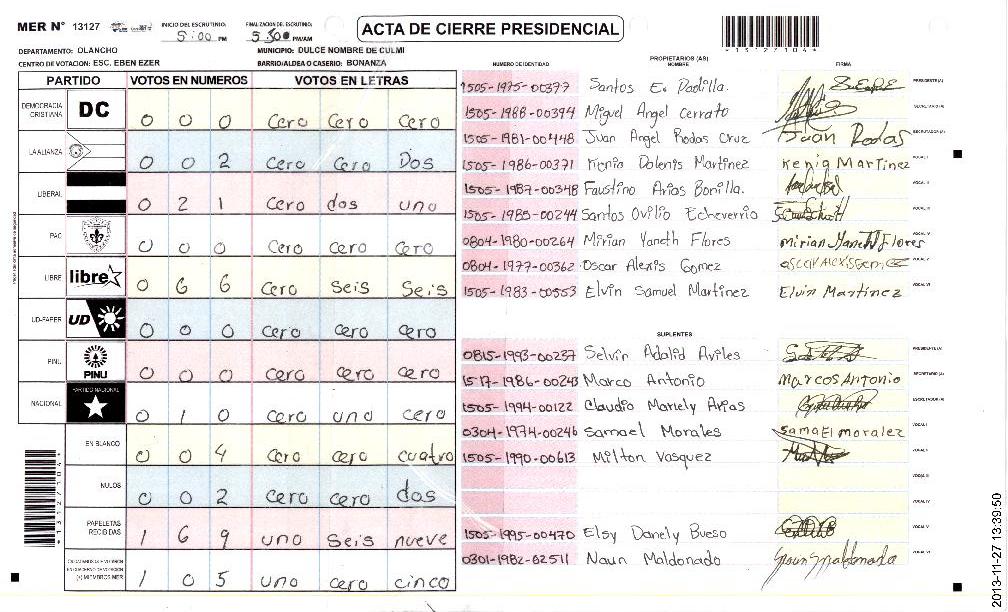 MER N° 13127 INICIO DEL ESCRUTINIO: 5:00 PM FINALIZACION DEL ESCRUTINIO: PM/AM ACTA DE CIERRE PRESIDENCIAL
DEPARTAMENTO: OLANCHO MUNICIPIO: DULCE NOMBRE DE CULMI
CENTRO DE VOTACION: ESC. EBEN EZER BARRIO/ALDEA O CASERIO: BONANZA
*13127104*
PARTIDO VOTOS EN NUMEROS VOTOS EN LETRAS
DEMOCRACIA CRISTIANA DC 0 0 0 Cero Cero Cero
LA ALIANZA 0 0 2 Cero Cero Dos
LIBERAL 0 2 1 Cero dos uno
PAC 0 0 0 Cero Cero Cero
LIBRE libre 0 6 6 Cero Seis Seis
UD-FAPER UD 0 0 0 Cero cero cero
PINU PINU 0 0 0 Cero cero cero
NACIONAL PARTIDO NACIONAL 0 1 0 Cero uno cero
EN BLANCO 0 0 4 Cero cero cuatro
NULOS 0 0 2 Cero cero dos
PAPELETAS RECIBIDAS 1 6 9 uno Seis nueve
CIUDADANOS QUE VOTARON EN CUADERNO DE VOTACION (+) MIEMBROS MER 1 0 5 uno cero cinco
*13127104*
PROPIETARIOS (AS)
NUMERO DE IDENTIDAD NOMBRE FIRMA
1505-1975-00377 Santos E. Padilla. PRESIDENTE (A)
1505-1988-00394 Miguel Angel Cerrato SECRETARIO (A)
1505-1981-00448 Juan Angel Rodas Cruz Juan Rodas ESCRUTADOR (A)
1505-1986-00371 Kenia Dolenis Martinez Kenia Martinez VOCAL I
1505-1987-00348 Faustino Arias Bonilla. VOCAL II
1505-1985-00244 Santos Ovilio Echeverrio VOCAL III
0804-1980-00264 Mirian Yaneth Flores Mirian Yaneth Flores VOCAL IV
0804-1977-00362 Oscar Alexis Gomez VOCAL V
1505-1983-00553 Elvin Samuel Martinez Elvin Martinez VOCAL VI
SUPLENTES
0815-1993-00237 Selvin Adalid Aviles PRESIDENTE (A)
1517-1986-00243 Marco Antonio Marcos Antonio SECRETARIO (A)
1505-1994-00122 Claudio Mariely Arias ESCRUTADOR (A)
0304-1974-00246 Samael Morales Samael moralez VOCAL I
1505-1990-00613 Milton Vasquez VOCAL II
VOCAL III
VOCAL IV
1505-1995-00470 Elsy Danely Bueso VOCAL V
0301-1982-02511 Naun Maldonado Naun maldonado VOCAL VI
2013-11-27 13:39:50